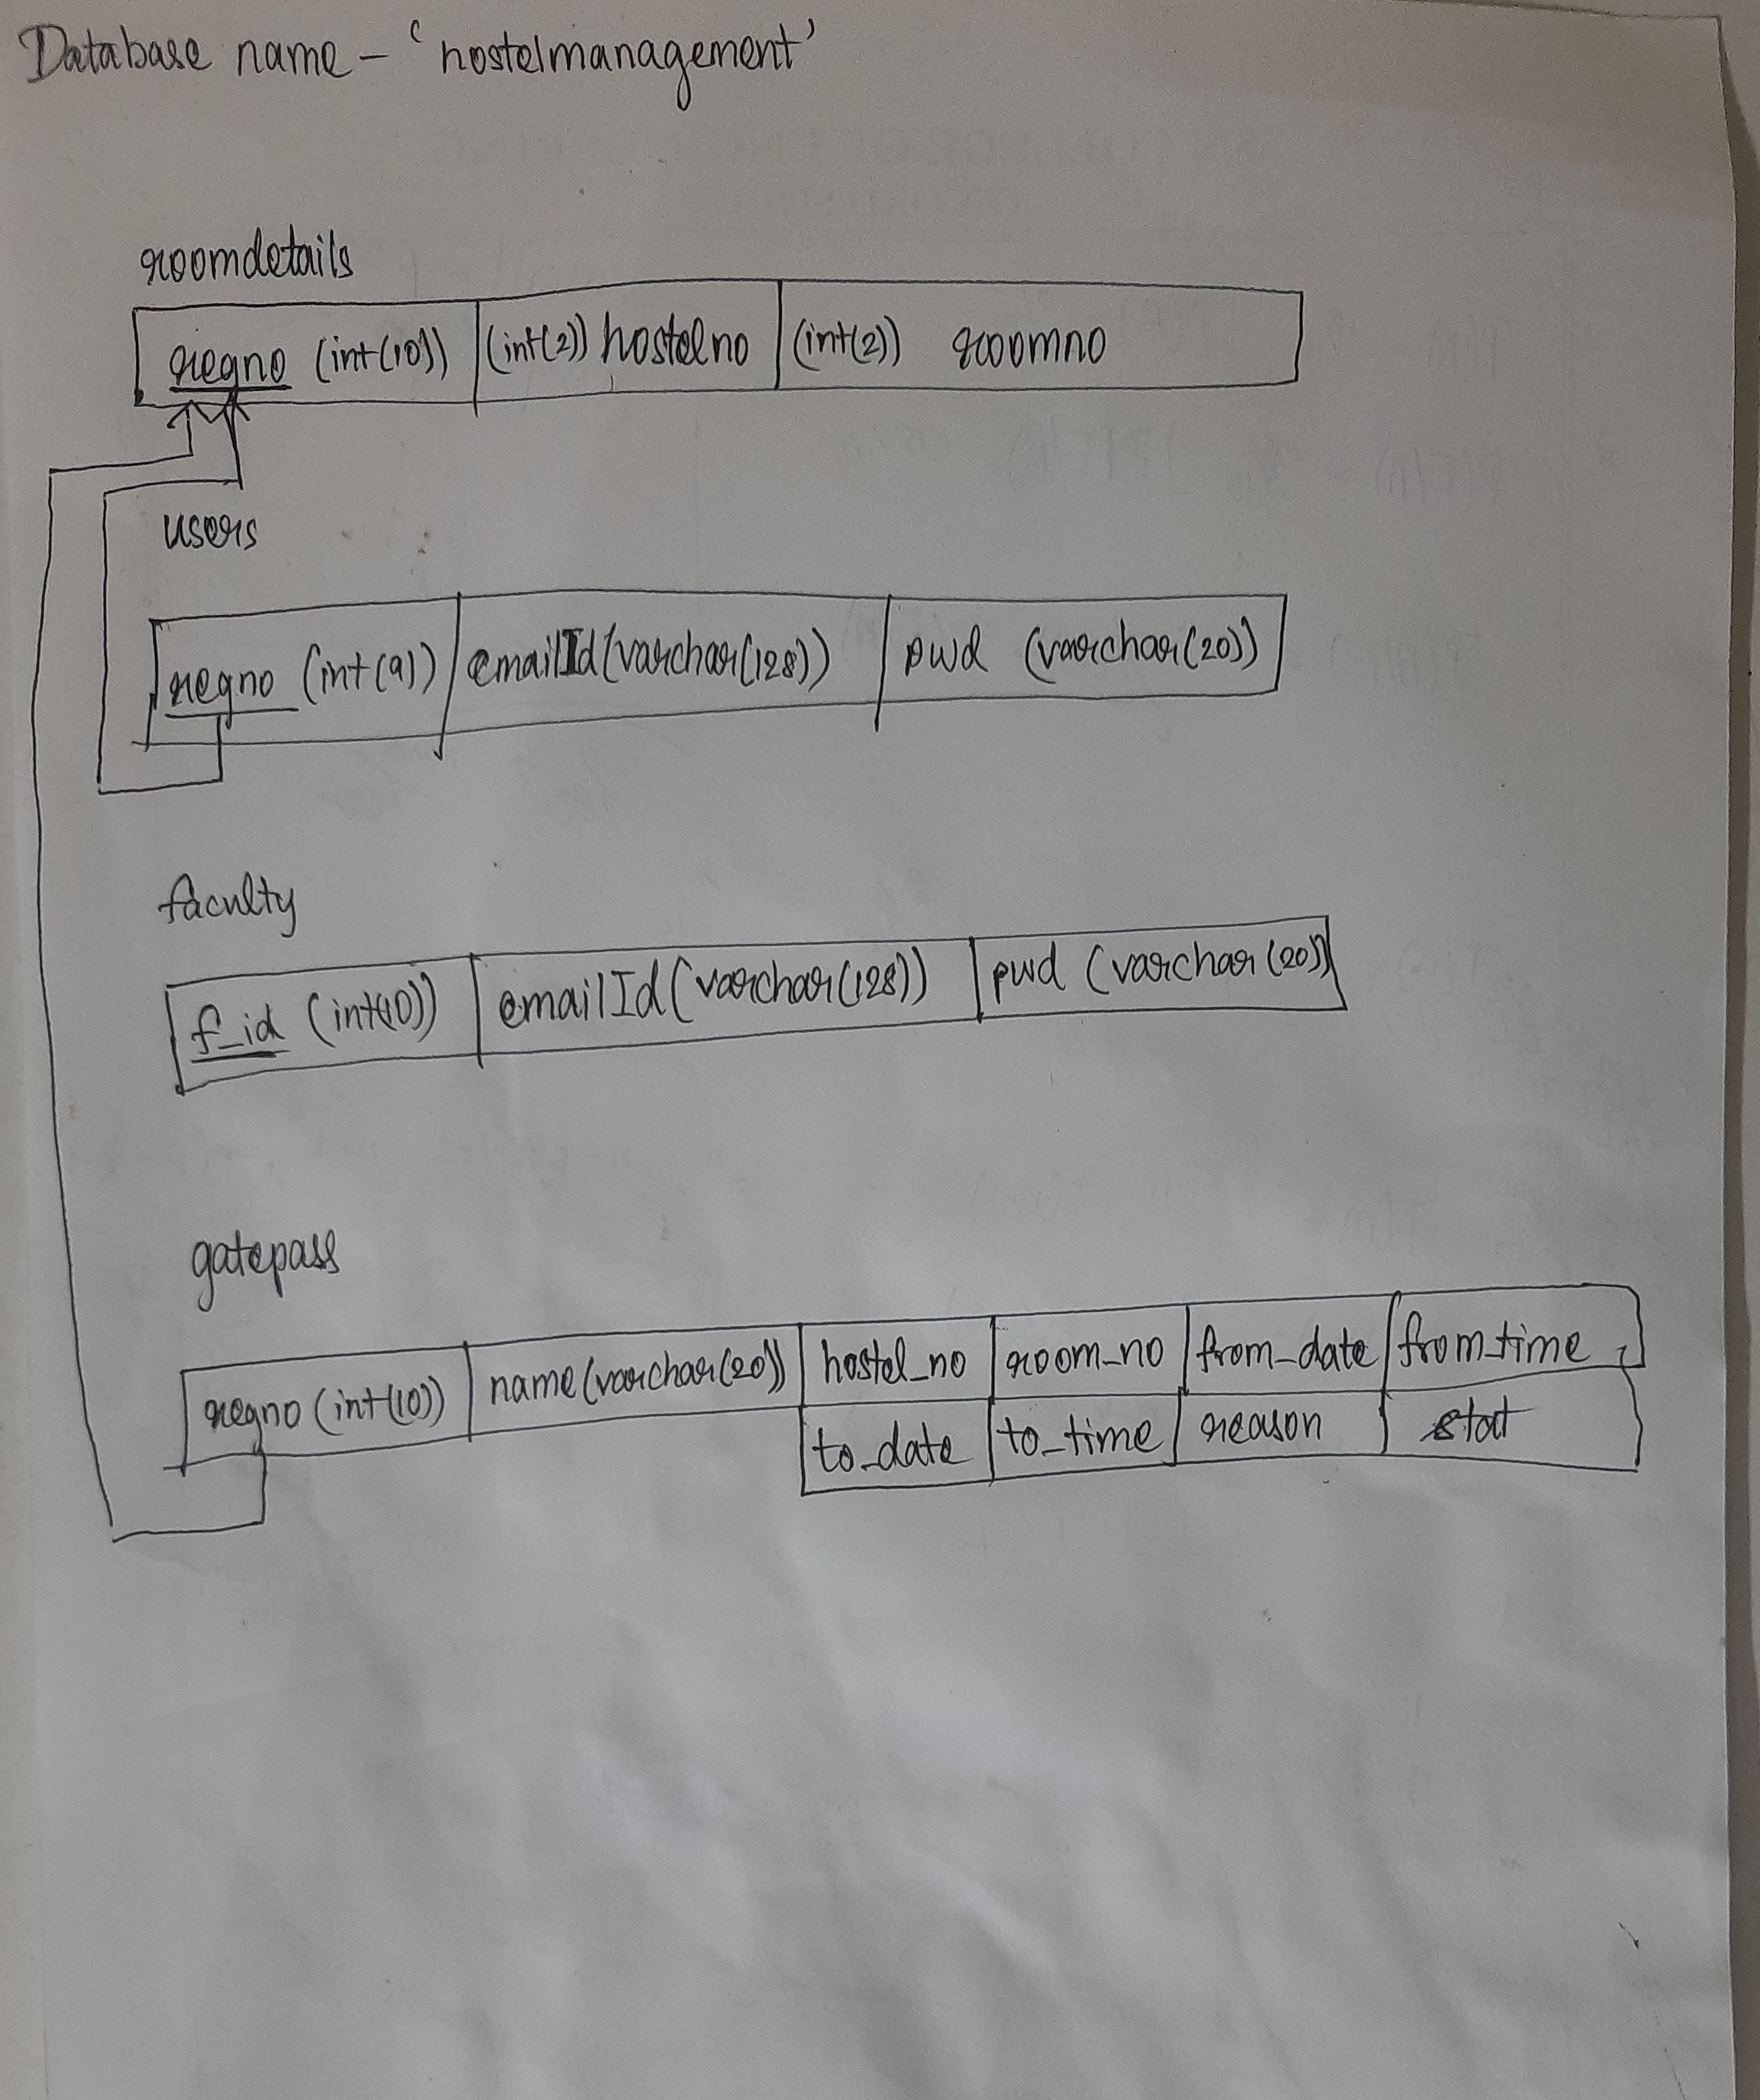 Database name - 'hostelmanagement'
roomdetails
regno (int(10)) (int(2)) hostelno (int(2)) roomno
users
regno (int(9)) emailId (varchar(128)) pwd (varchar(20))
faculty
f_id (int(10)) emailId (varchar(128)) pwd (varchar(20))
gatepass
regno (int(10)) name (varchar(20)) hostel_no room_no from_date from_time
to_date to_time reason stat